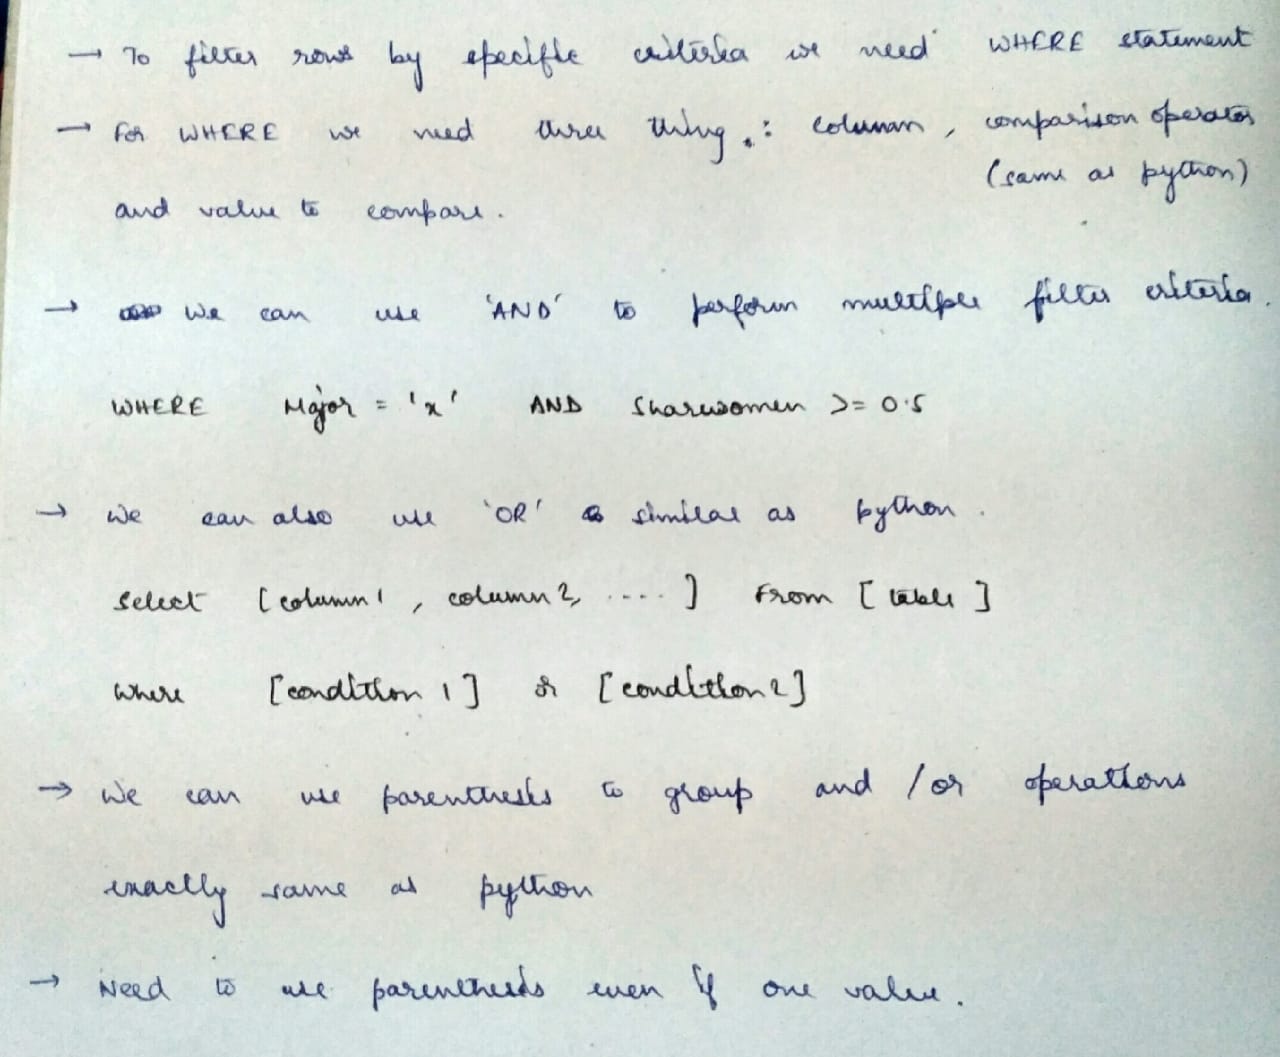 → To filter rows by specific criteria we need WHERE statement
→ For WHERE we need three thing.: column, comparison operator
(same as python)
and value to compare.
→ We can use 'AND' to perform multiple filter criteria.
WHERE Major = 'x' AND Sharewomen >= 0.5
→ We can also use 'OR' similar as python.
Select [column1, column2, ....] From [table]
Where [condition 1] or [condition2]
→ We can use parenthesis to group and /or operations
exactly same as python
→ Need to use parenthesis even if one value.